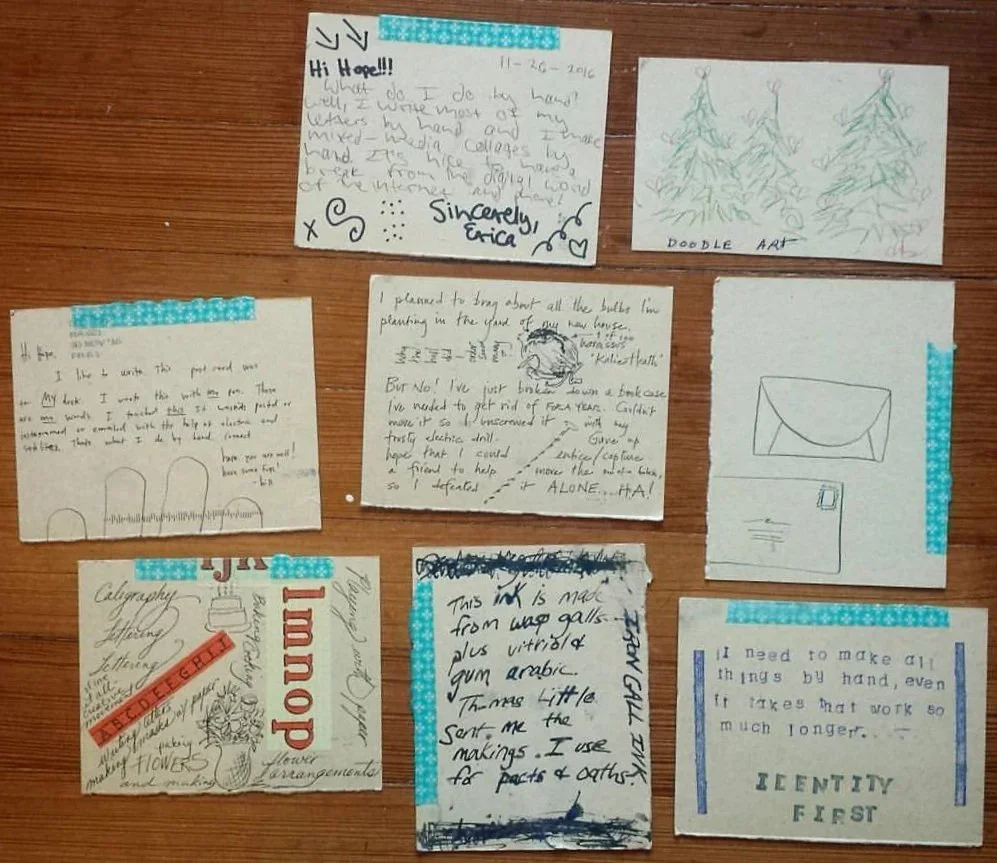 Hi Hope!!!
11-26-2016
What do I do by hand?
Well, I write most of my
letters by hand and I make
mixed-media collages by
hand. It's nice to have a
break from the digital world
of the internet and phone!
Sincerely,
Erica
X
DOODLE ART
Hi Hope,
I like to write. This post card was
on My desk. I wrote this with my pen. These
are my words. I touched this. It wasn't posted or
or emailed with the help of electric and
That's what I do by hand
hope you are well!
have some fun!
I planned to brag about all the bulbs I'm
planting in the yard of my new house.
1 of 100
narcissus
BUT NO! I've just broken down a bookcase
I've needed to get rid of FOR A YEAR. Couldn't
move it so I unscrewed it with my
trusty electric drill. Gave up
hope that I could entice/capture
a friend to help move the
so I defeated it ALONE....HA!
IJK
lmnop
Caligraphy
Lettering
Lettering
ABCDEFGHIJ
Baking Cooking
Playing with paper
writing letters
making
making
FLOWERS
and making
flower
arrangements
This ink is made
from wasp galls
plus vitriol &
gum arabic.
Thomas Little
Sent me the
makings. I use
for pacts & oaths.
IRON GALL INK
I need to make all
things by hand, even
if takes that work so
much longer.....
IDENTITY
FIRST